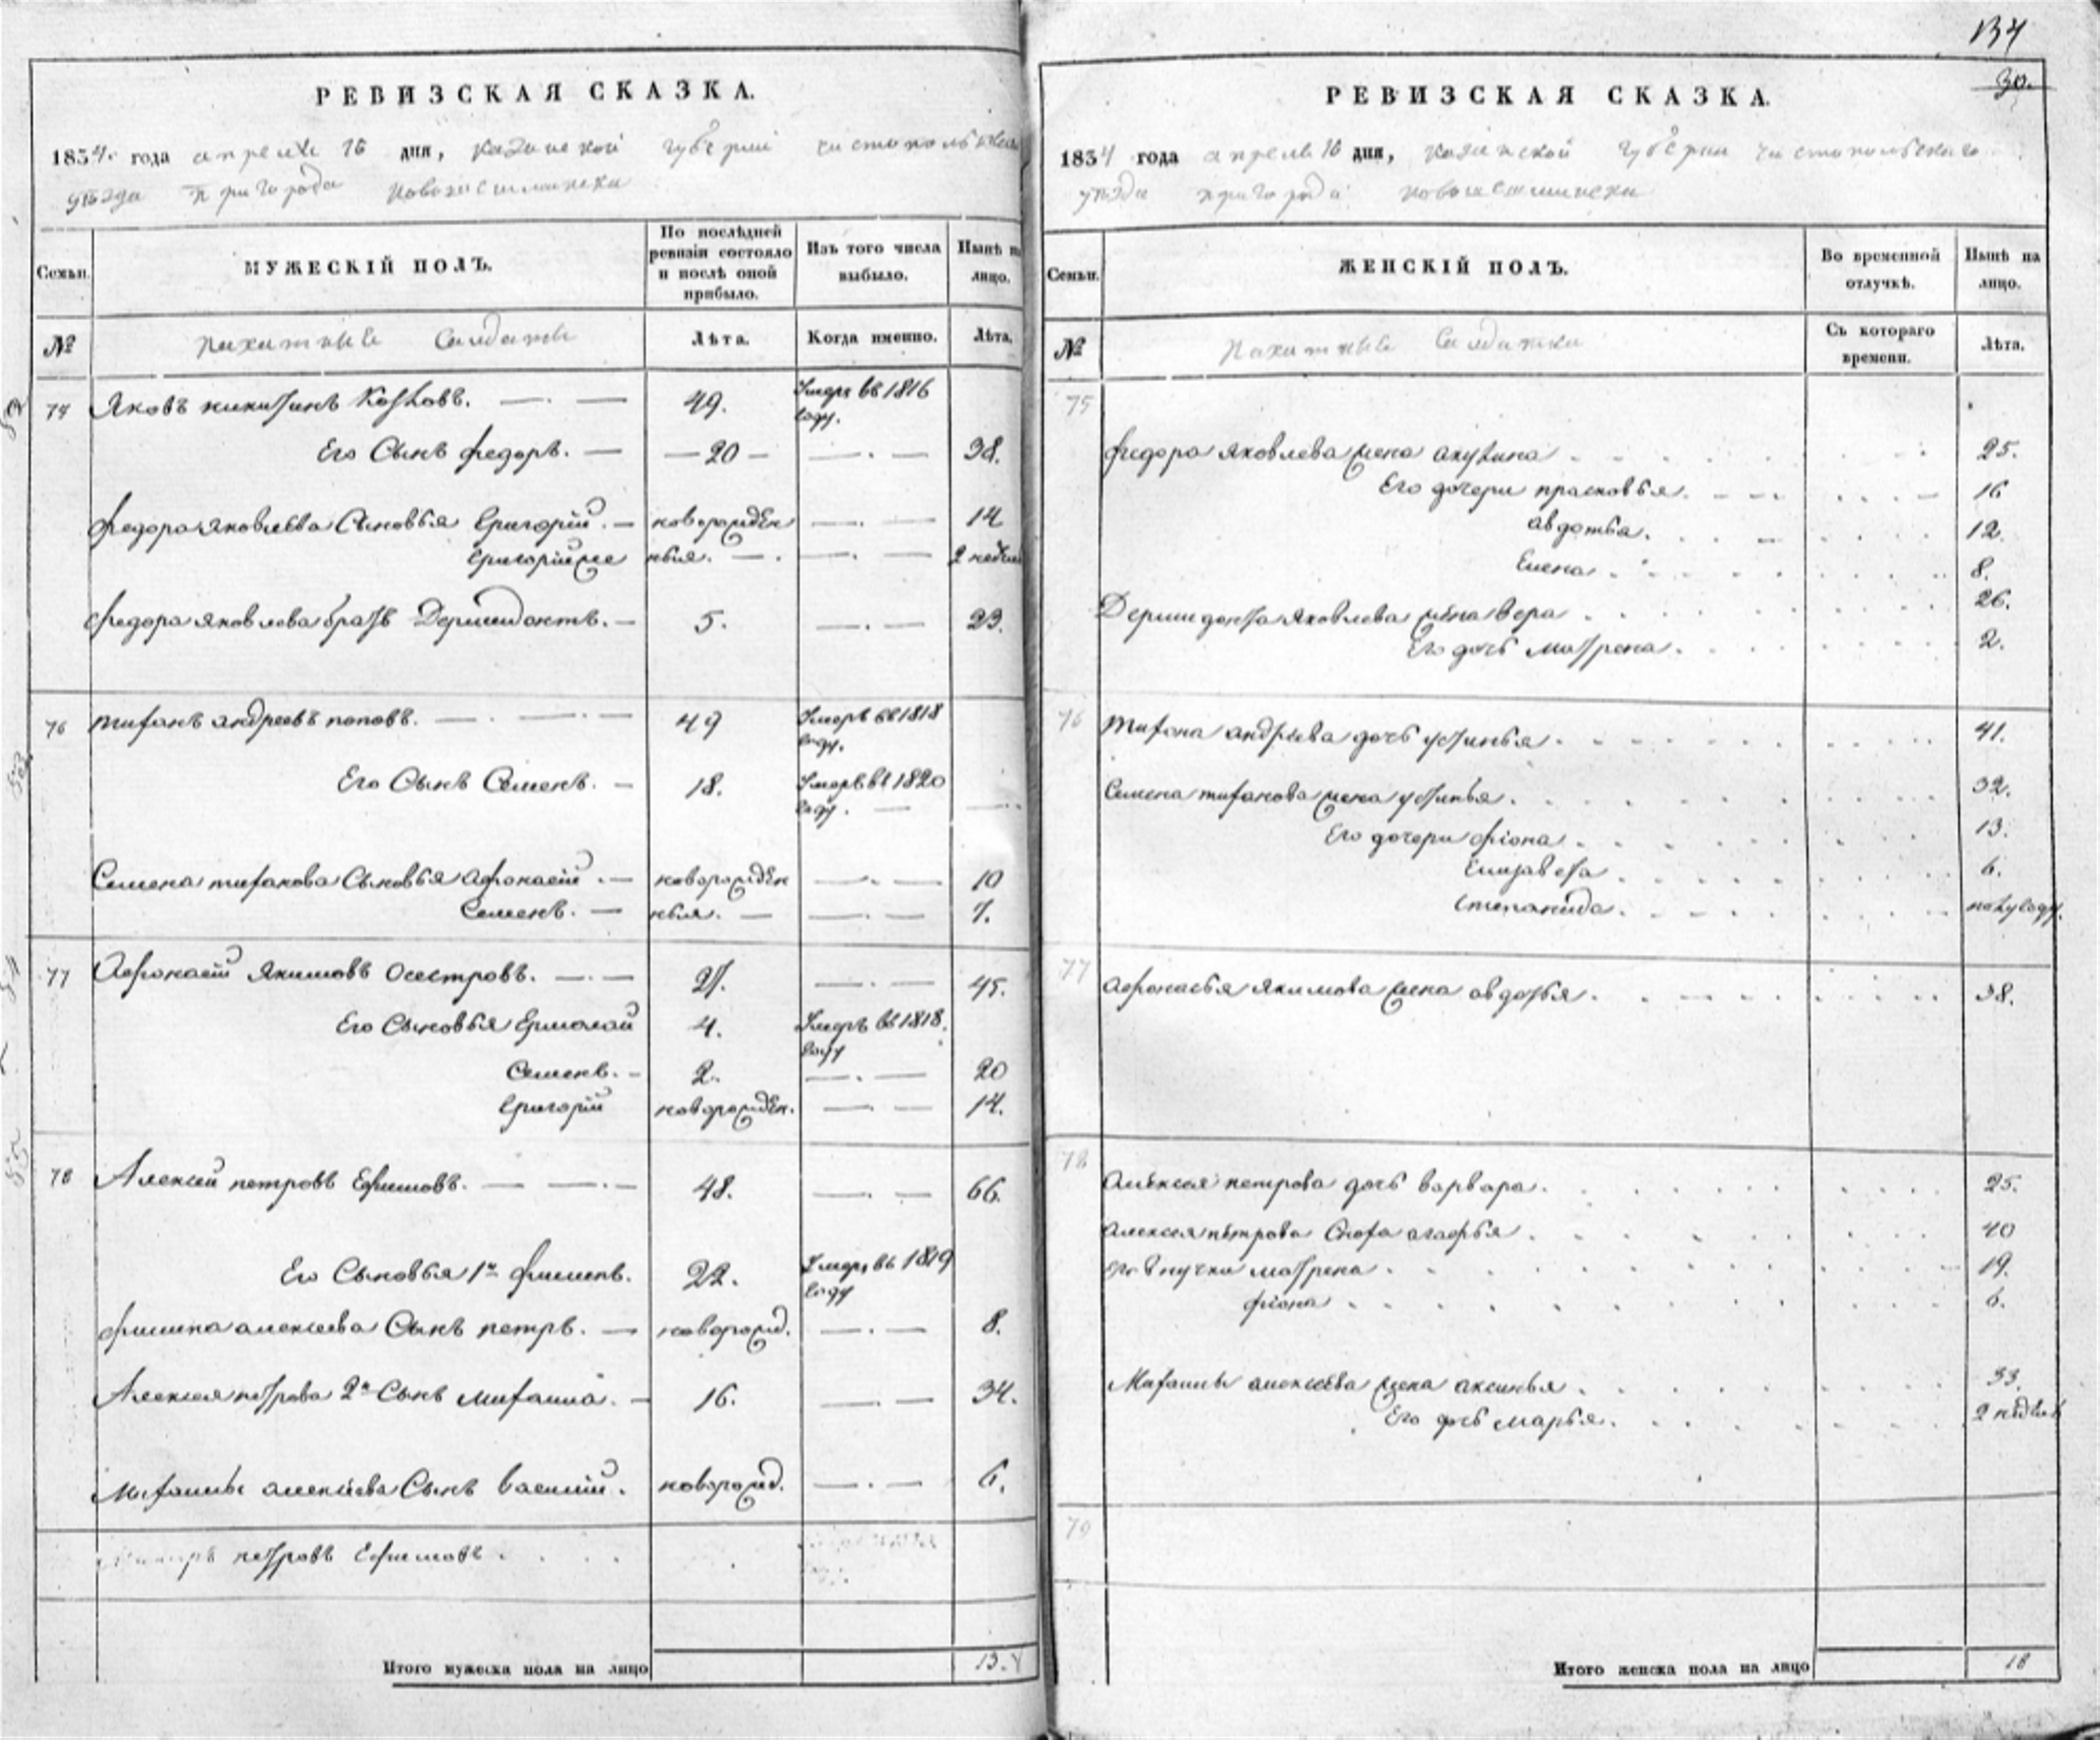 134
РЕВИЗСКАЯ СКАЗКА.
1834 года апреля 16 дня, казанской губернии чистопольскаго
уѣзда пригорода новошешминска
Семьи.
МУЖЕСКІЙ ПОЛЪ.
По послѣдней ревизіи состояло и послѣ оной прибыло.
Изъ того числа выбыло.
Нынѣ на лицо.
№
пахатные Салдаты
Лѣта.
Когда именно.
Лѣта.
75 Яковъ никитинъ Козловъ. 49. Умеръ въ 1816 году.
Его Сынъ федоръ. 20 38.
федора яковлева Сыновья Григорій. новорожден 14
Григорій же ныя. 2 недели
федора яковлева братъ Дермидонтъ. 5. 23.
76 тифанъ андреевъ поповъ. 49 Умеръ въ 1818 году.
Его Сынъ Семенъ. 18. Умеръ въ 1820 году.
Семена тифанова Сыновья Афонасій. новорожден 10
Семенъ. ныя. 7.
77 Афонасій Якимовъ Осетровъ. 27. 45.
Его Сыновья Ермолай 4. Умеръ въ 1818. году
Семенъ. 2. 20
Григорій новорожден. 14.
78 Алексей петровъ Ефимовъ. 48. 66.
Его Сыновья 1й филипъ. 22. Умеръ въ 1819 году
филипа алексеева Сынъ петръ. новорожд. 8.
Алексея петрова 2й Сынъ Михаила. 16. 34.
Михаилы алексеева Сынъ василий. новорожд. 6.
петровъ Ефимовъ.
Итого мужеска пола на лицо 13.
30.
РЕВИЗСКАЯ СКАЗКА.
1834 года апреля 16 дня, казанской губернии чистопольскаго
уѣзда пригорода новошешминска
Семьи.
ЖЕНСКІЙ ПОЛЪ.
Во временной отлучкѣ.
Нынѣ на лицо.
№
пахатные Салдатки
Съ котораго времени.
Лѣта.
75
федора яковлева жена акулина 25.
Его дочери прасковья. 16
авдотья. 12.
Елена. 8.
Дермидонта яковлева жена вера 26.
Его дочь матрена. 2.
76 тифона андреева дочь устинья. 41.
Семена тифанова жена устинья. 32.
Его дочери фіона 13.
Елизавета 6.
степанида. полугоду.
77 афонасья якимова жена авдотья. 38.
78 алексея петрова дочь варвара. 25.
алексея петрова Сноха агафья 40
его внучки матрена 19.
фіона 6.
Михаилы алексеева жена аксинья 33.
Его дочь марья. 2 недели
79
Итого женска пола на лицо 18